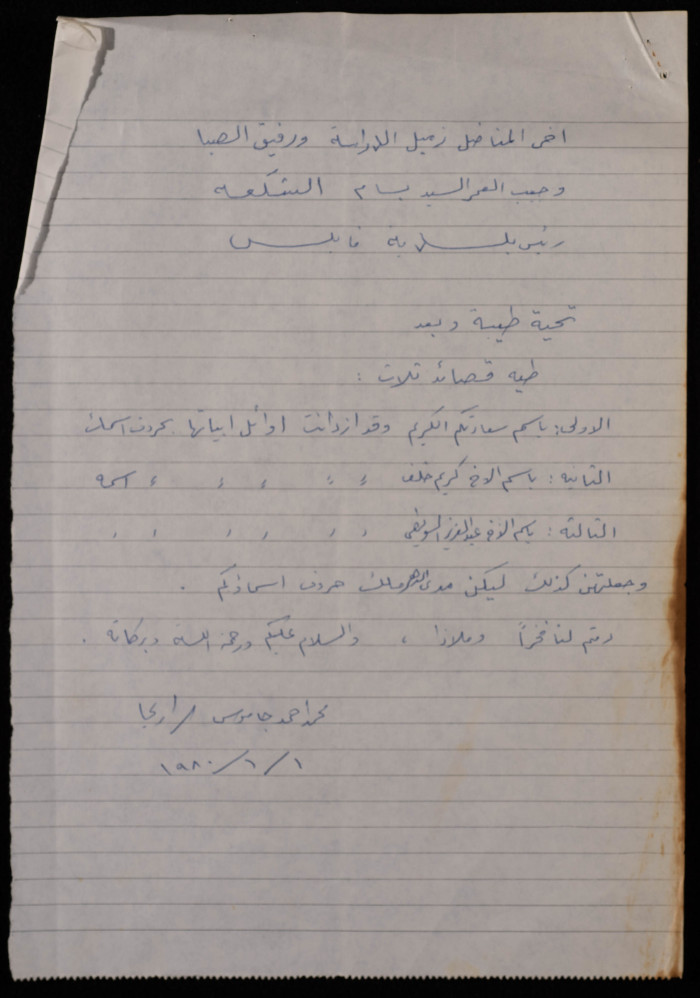 اخي المناضل زميل الدراسة ورفيق الصبا
وحبيب العمر السيد بسام الشكعه
رئيس بلدية نابلس
تحية طيبة وبعد
طيه قصائد ثلاث :
الاولى : باسم سعادتكم الكريم وقد ازدانت اوائل ابياتها بحروف اسمك
الثانيه : باسم الاخ كريم خلف ، ، ، ، ، اسمه
الثالثة : باسم الاخ عبد العزيز السويطي ، ، ، ، ، ،
وجعلتهن كذلك ليكن مدى الدهر ملك حروف اسماؤكم .
دمتم لنا فخراً وملاذا ، والسلام عليكم ورحمة الله وبركاته .
محمد احمد جاموس / اريحا
١ / ٦ / ١٩٨٠